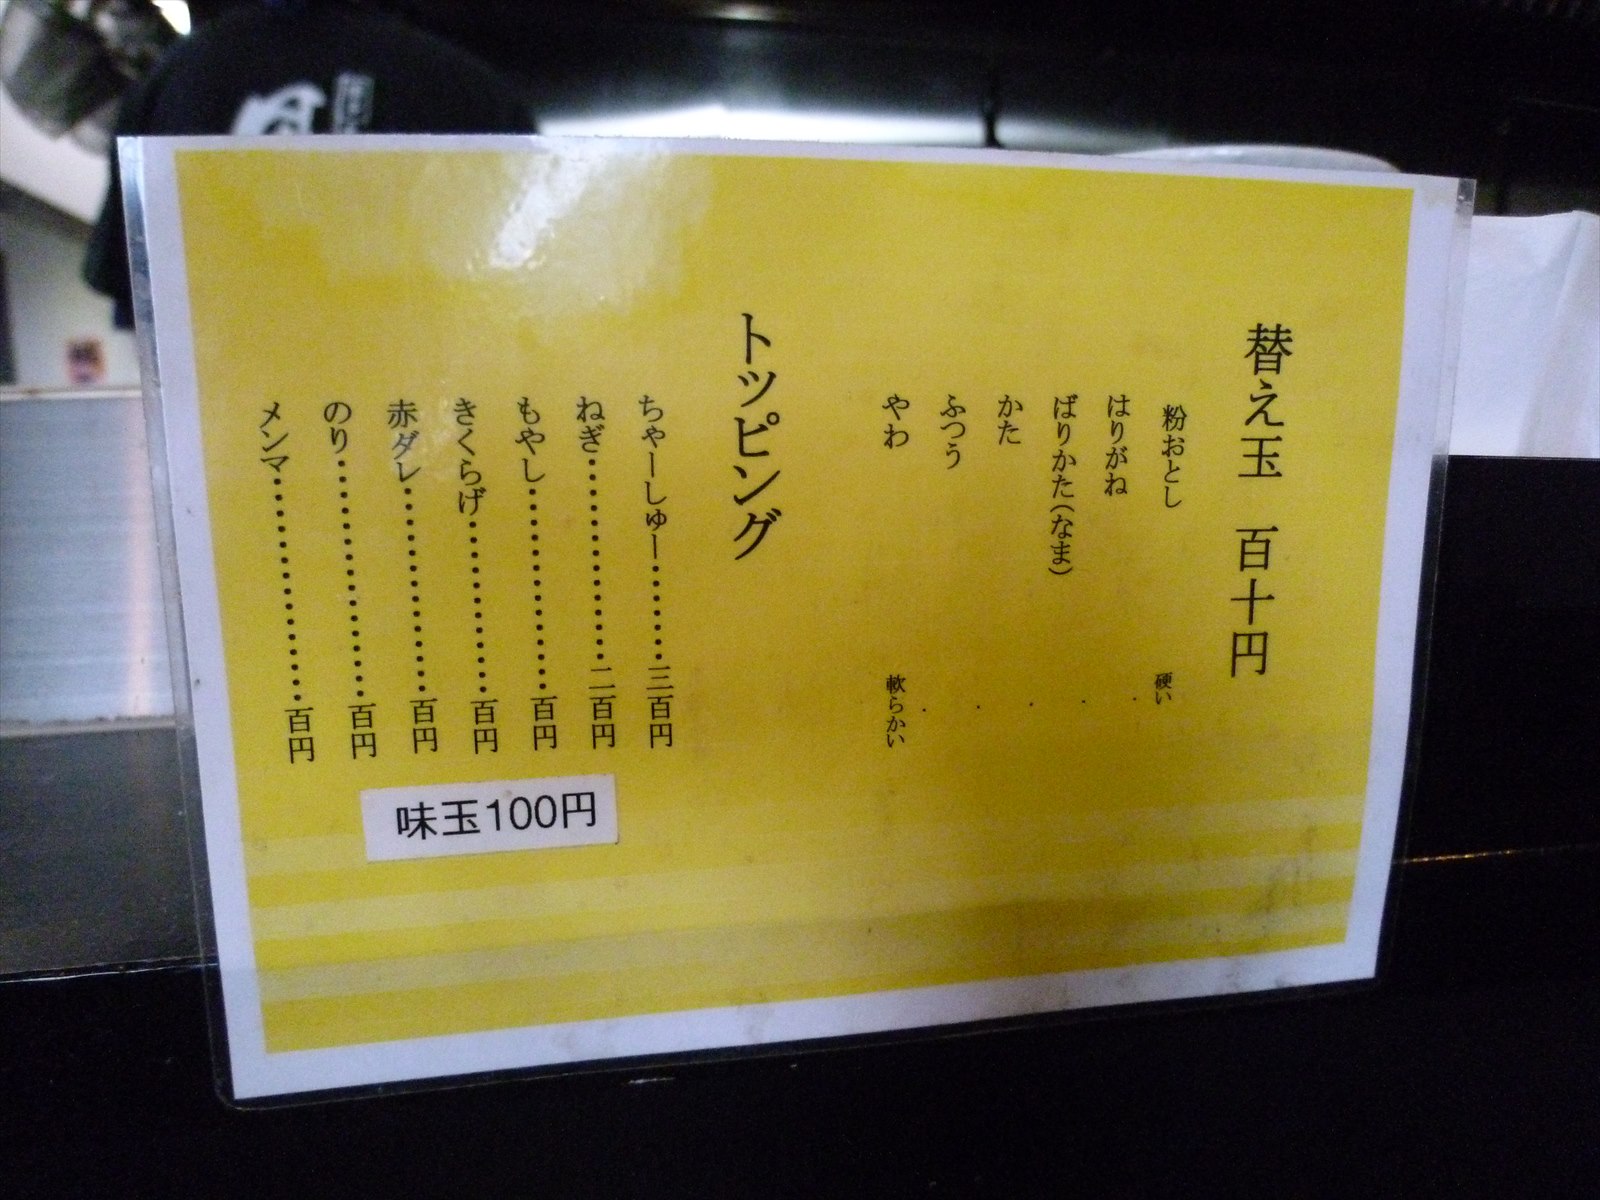 替え玉 百十円
粉おとし 硬い
はりがね ・
ばりかた(なま) ・
かた ・
ふつう ・
やわ 軟らかい
トッピング
ちゃーしゅー・・・・・・・三百円
ねぎ・・・・・・・・・・・・・・二百円
もやし・・・・・・・・・・・・・・百円
きくらげ・・・・・・・・・・・・百円
赤ダレ・・・・・・・・・・・・・・百円
のり・・・・・・・・・・・・・・・・百円
メンマ・・・・・・・・・・・・・・・百円
味玉100円